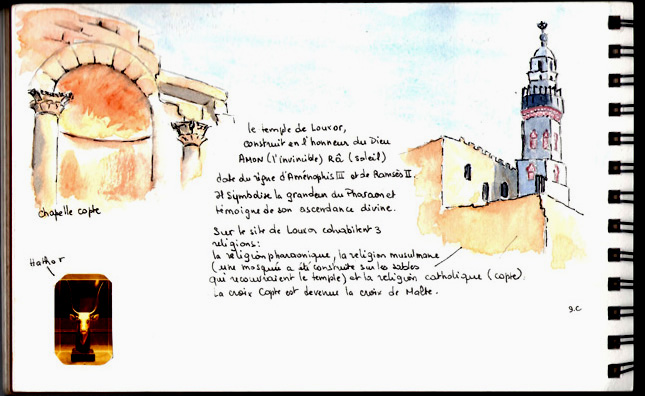 le temple de Louxor,
construit en l'honneur du Dieu
AMON (l'invincible) Râ (soleil)
date du règne d'Aménophis III et de Ramsès II.
Il symbolise la grandeur du Pharaon et
témoigne de son ascendance divine.
Sur le site de Louxor cohabitent 3
religions:
la religion pharaonique, la religion musulmane
(une mosquée a été construite sur les sables
qui recouvraient le temple) et la religion catholique (copte).
La croix Copte est devenue la croix de Malte.
chapelle copte
Hathor
J.C